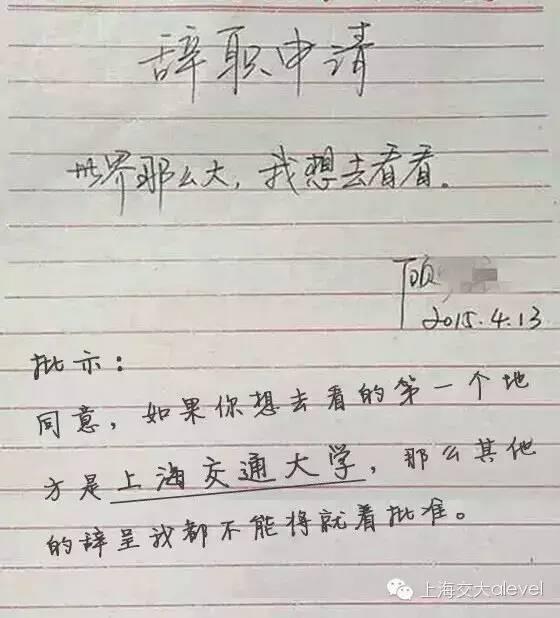 辞职申请
世界那么大，我想去看看。
顾
2015.4.13
批示：
同意，如果你想去看的第一个地
方是上海交通大学，那么其他
的辞呈我都不能将就着批准。
上海交大alevel